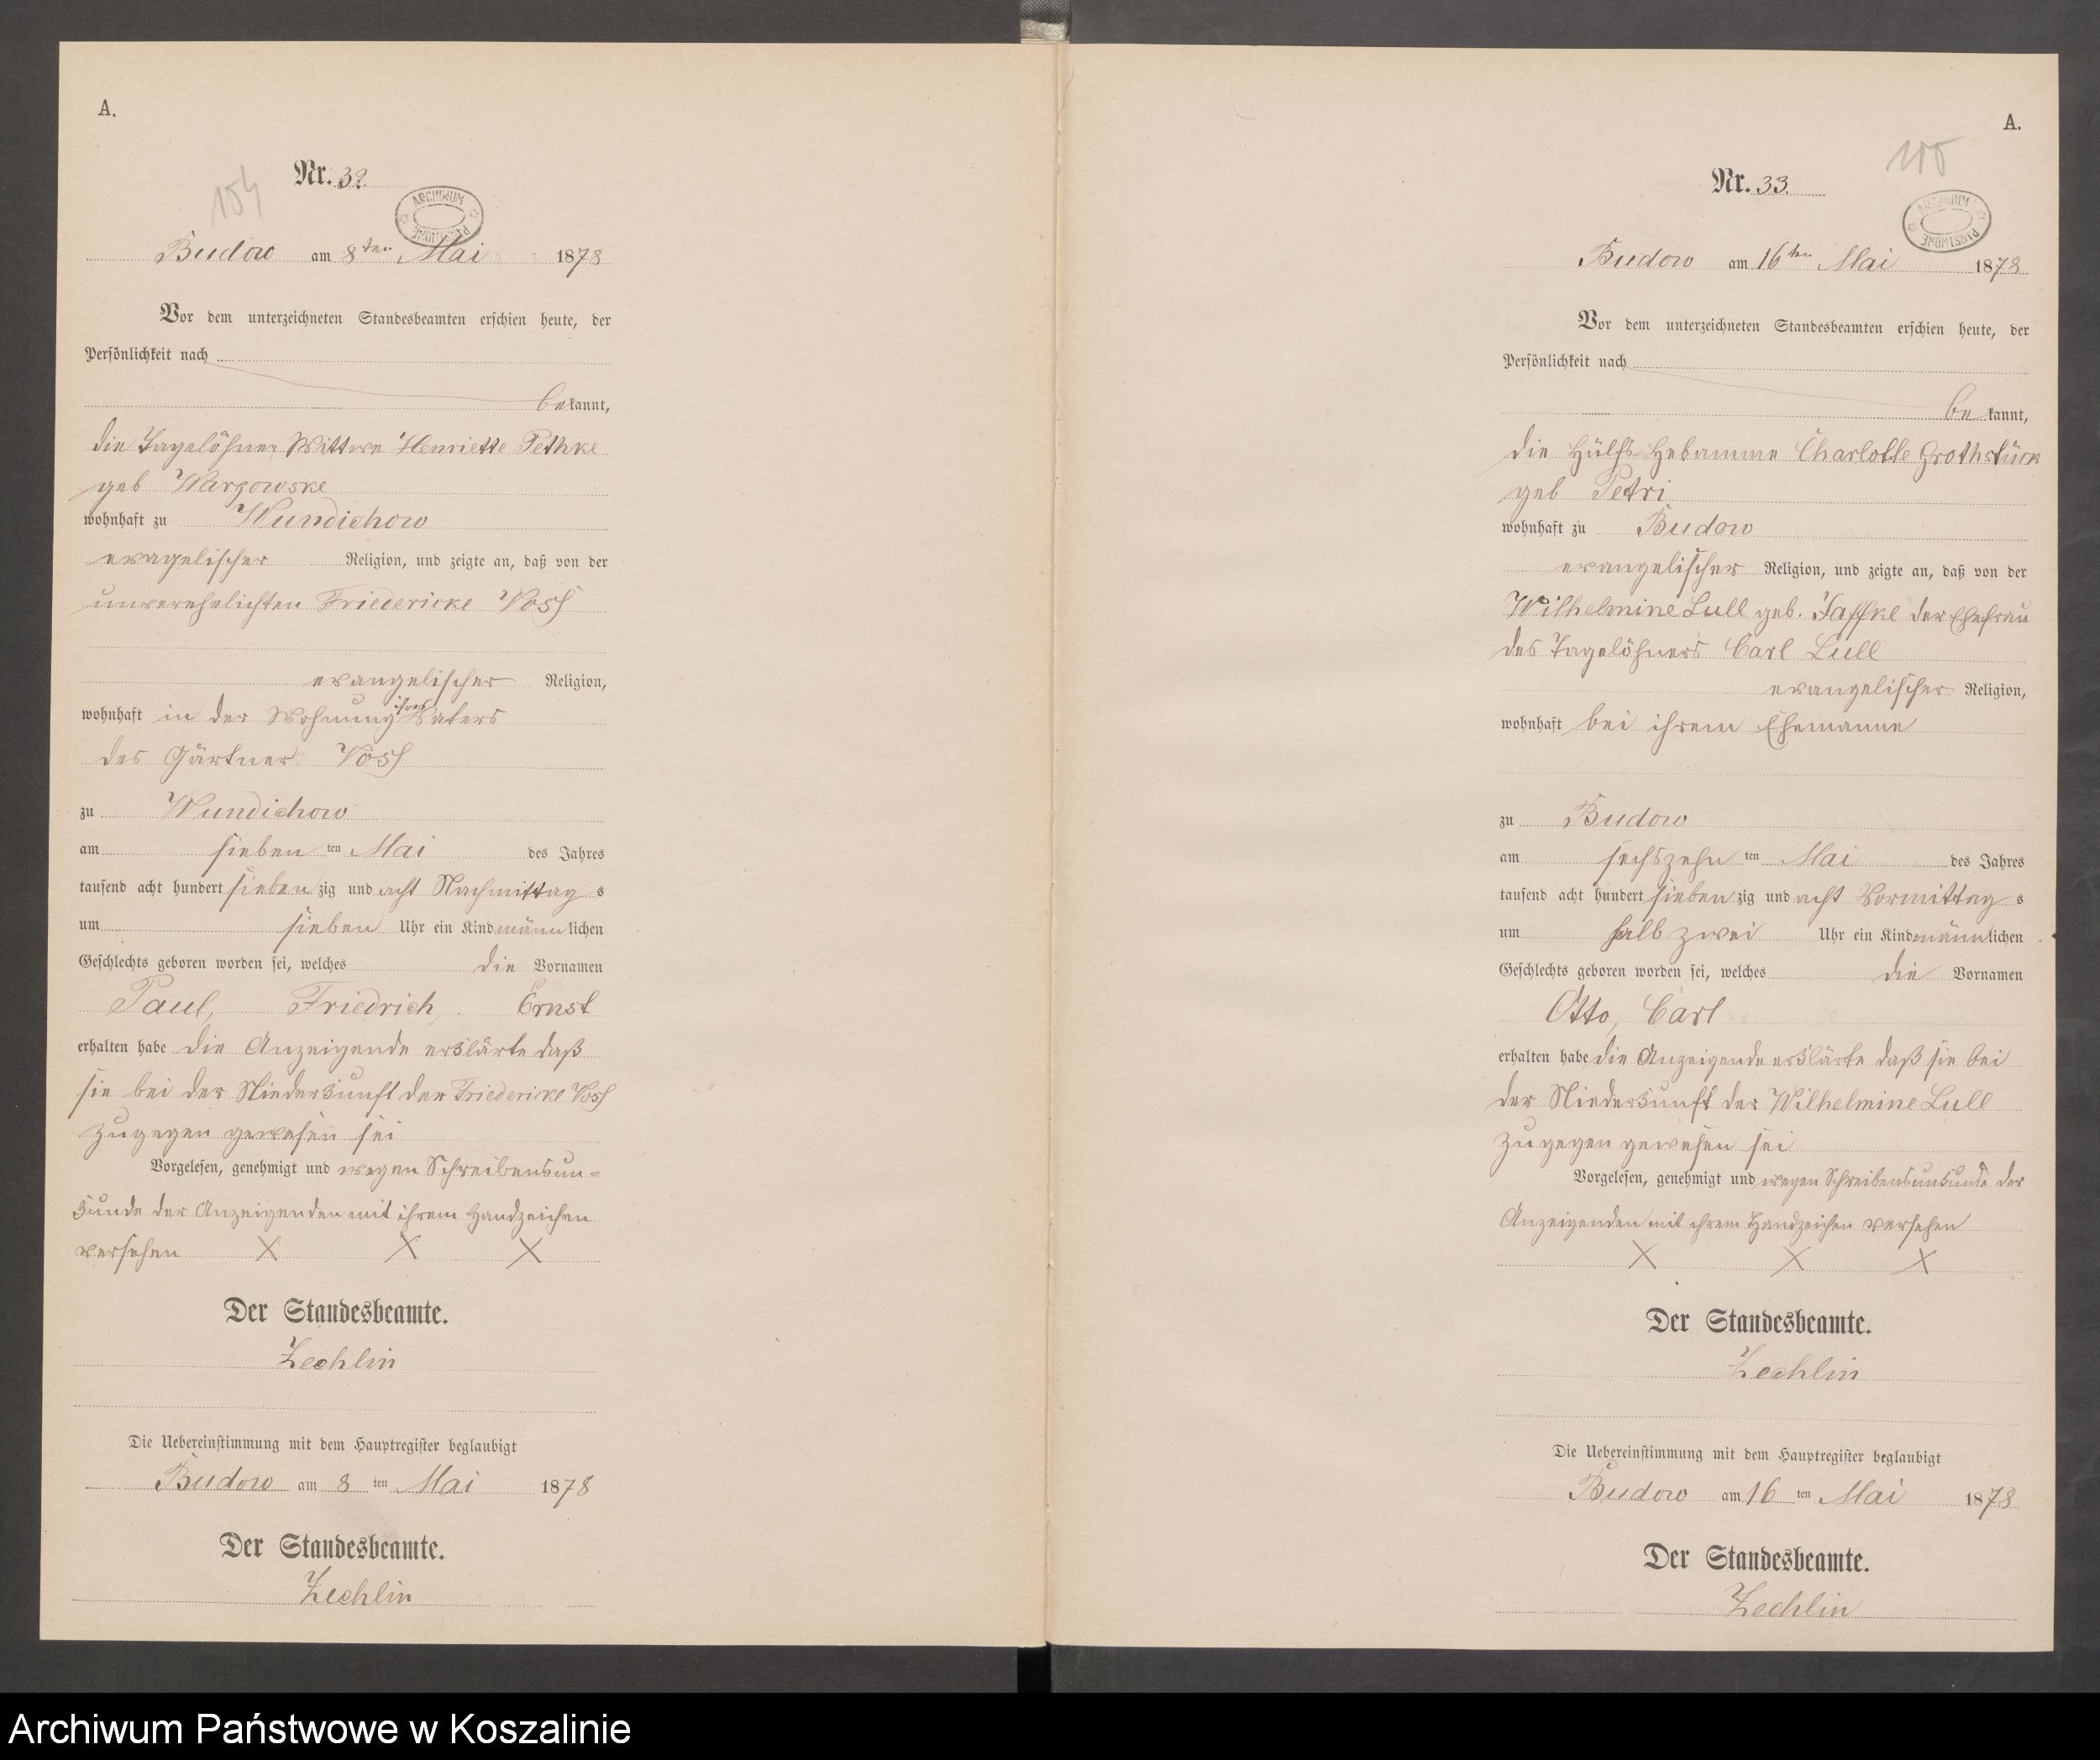 A.
154
Nr. 32.
ARCHIWUM PAŃSTWOWE
Budow am 8ten Mai 1878
Vor dem unterzeichneten Standesbeamten erschien heute, der
Persönlichkeit nach
bekannt,
die Tagelöhner Wittwe Henriette Pethke
geb Wargowske
wohnhaft zu Wundichow
evagelischer Religion, und zeigte an, daß von der
unverehelichten Friedericke Voss
evangelischer Religion,
wohnhaft in der Wohnung ihres Vaters
des Gärtner Voss
zu Wundichow
am sieben ten Mai des Jahres
tausend acht hundert sieben zig und acht Nachmittag s
um sieben Uhr ein Kind männlichen
Geschlechts geboren worden sei, welches die Vornamen
Paul, Friedrich, Ernst
erhalten habe die Anzeigende erklärte daß
sie bei der Niederkunft der Friedericke Voss
zugegen gewesen sei
Vorgelesen, genehmigt und wegen Schreibensun=
kunde der Anzeigenden mit ihrem Handzeichen
versehen X X X
Der Standesbeamte.
Zechlin
Die Uebereinstimmung mit dem Hauptregister beglaubigt
Budow am 8 ten Mai 1878
Der Standesbeamte.
Zechlin
A.
Nr. 33.
ARCHIWUM PAŃSTWOWE
Budow am 16ten Mai 1878
Vor dem unterzeichneten Standesbeamten erschien heute, der
Persönlichkeit nach
bekannt,
die Hülfs-Hebamme Charlotte Grothstück
geb Petri
wohnhaft zu Budow
evangelischer Religion, und zeigte an, daß von der
Wilhelmine Lull geb. Jaffke der Ehefrau
des Tagelöhners Carl Lull
evangelischer Religion,
wohnhaft bei ihrem Ehemanne
zu Budow
am sechszehn ten Mai des Jahres
tausend acht hundert sieben zig und acht Vormittag s
um halb zwei Uhr ein Kind männlichen
Geschlechts geboren worden sei, welches die Vornamen
Otto, Carl
erhalten habe die Anzeigende erklärte daß sie bei
der Niederkunft der Wilhelmine Lull
zugegen gewesen sei
Vorgelesen, genehmigt und wegen Schreibensunkunde der
Anzeigenden mit ihrem Handzeichen versehen
X X X
Der Standesbeamte.
Zechlin
Die Uebereinstimmung mit dem Hauptregister beglaubigt
Budow am 16 ten Mai 1878
Der Standesbeamte.
Zechlin
Archiwum Państwowe w Koszalinie